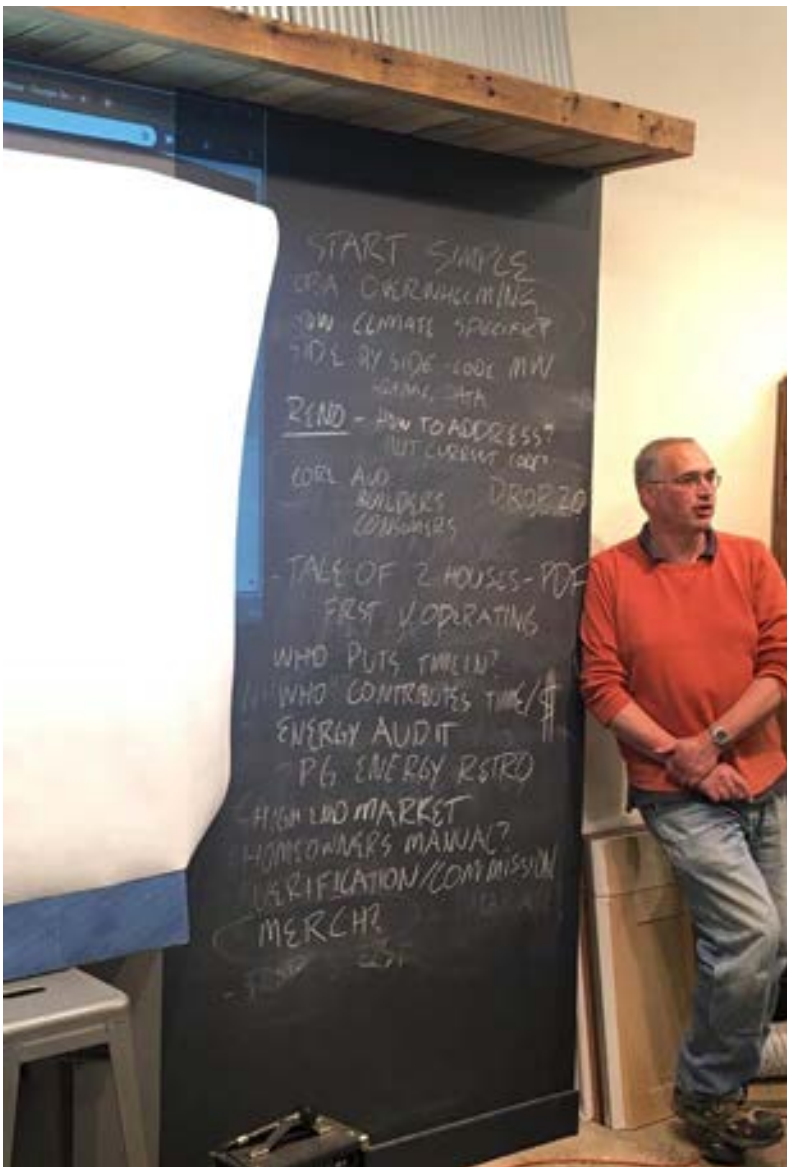 START SIMPLE
OVERWHELMING
HOW CLIMATE SPECIFIC?
SIDE BY SIDE - CODE MW
DATA
RENO - HOW TO ADDRESS?
CURRENT CODE?
CORE AUD
BUILDERS DROBZO
CONSUMERS
- TALE OF 2 HOUSES - PDF
FIRST V. OPERATING
WHO PUTS TIME IN?
WHO CONTRIBUTES TIME/$
ENERGY AUDIT
PG ENERGY RETRO
HIGH END MARKET
HOMEOWNERS MANUAL?
VERIFICATION/COMMISSION
MERCH?